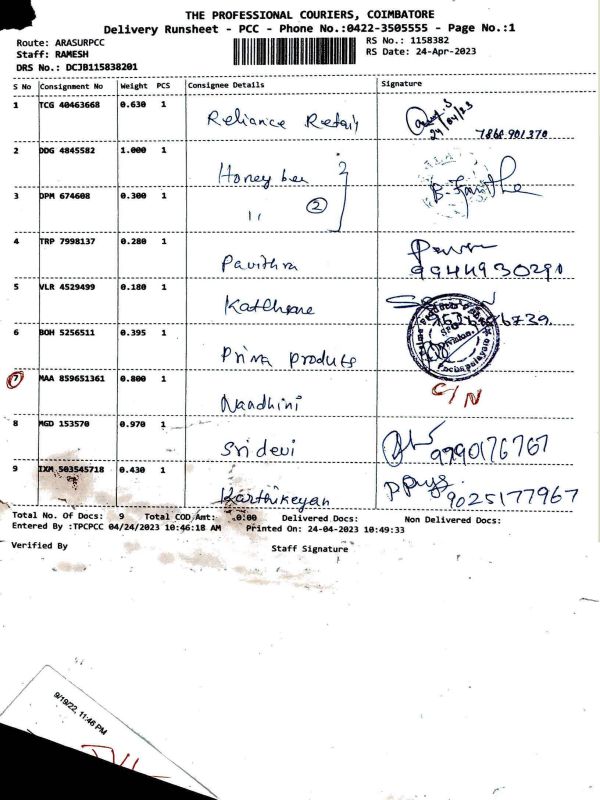 THE PROFESSIONAL COURIERS, COIMBATORE
Delivery Runsheet - PCC - Phone No.:0422-3505555 - Page No.:1
Route: ARASURPCC
RS No.: 1158382
Staff: RAMESH
RS Date: 24-Apr-2023
DRS No.: DCJB115838201
S No Consignment No Weight PCS Consignee Details Signature
1 TCG 40463668 0.630 1 Reliance Retail 24/04/23
7868901370
2 DDG 4845582 1.000 1 Honey bee 2
3 DPM 674608 0.300 1 11 2
4 TRP 7998137 0.280 1 Pavithra
9944930290
5 VLR 4529499 0.180 1
6 BOH 5256511 0.395 1 Priva Produts
7 MAA 859651361 0.800 1 Naadhini C/N
8 MGD 153570 0.970 1 Sri devi 9790176767
9 IXM 503545718 0.430 1 Karthikeyan 9025177967
Total No. Of Docs: 9 Total COD Amt: 0.00 Delivered Docs: Non Delivered Docs:
Entered By :TPCPCC 04/24/2023 10:46:18 AM Printed On: 24-04-2023 10:49:33
Verified By Staff Signature
9/19/22, 11:46 PM